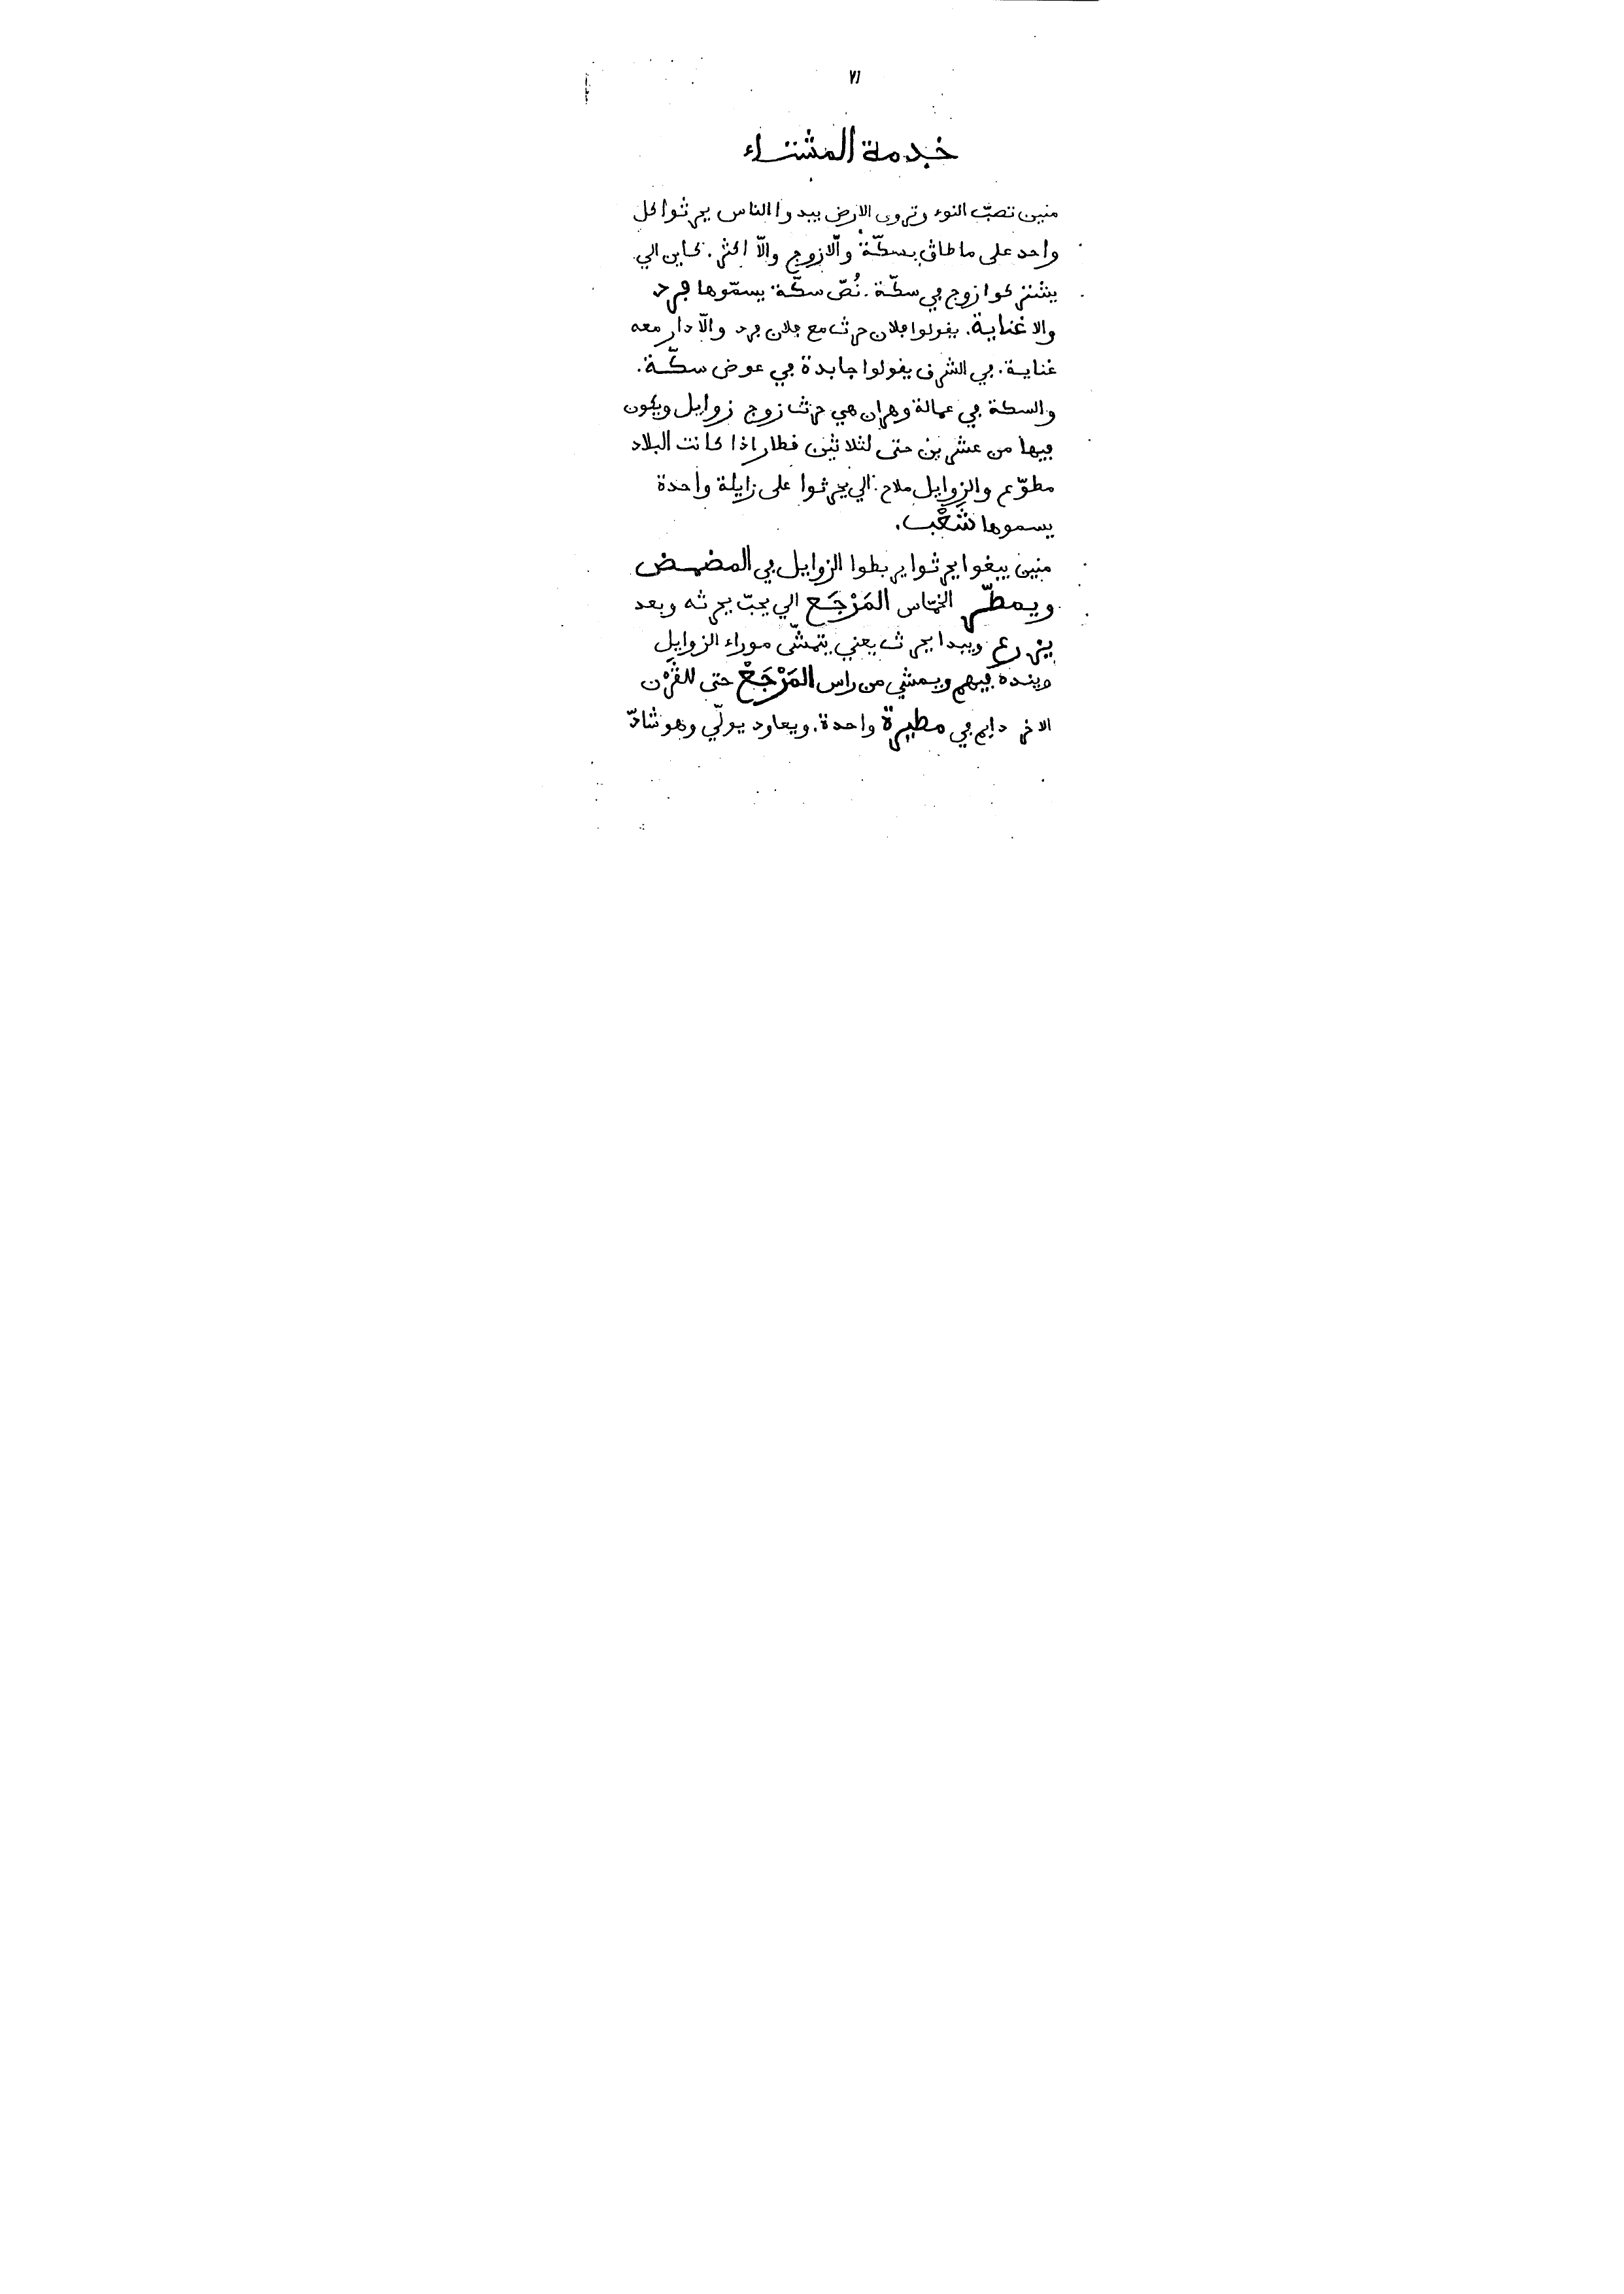 ٧١
خدمة المشتاء
منين تصبّ النوء وتروى الارض يبدوا الناس يحرثوا كل
واحد على ما طاق بسكّة والّا زوج والّا اكثر. كاين الي
يشتركوا زوج في سكّة. نُصّ سكّة يسمّوها فرد
والا غناية. يقولوا فلان حرث مع فلان فرد والّا دار معه
غناية. في الشرق يقولوا جابدة في عوض سكّة.
والسكة في عمالة وهران هي حرث زوج زوايل ويكون
فيها من عشرين حتى لثلاثين قطار اذا كانت البلاد
مطوّع والزوايل ملاح. الي يحرثوا على زايلة واحدة
يسموها شَعْب.
منين يبغوا يحرثوا يربطوا الزوايل في المضمض
ويمطّر الخمّاس المَرْجَع الي يحبّ يحرثه وبعد
يزرع ويبدا يحرث يعني يتمشّى موراء الزوايل
وينده فيهم ويمشي من راس المَرْجَعْ حتى للقُرْن
الاخر دايم في مطيرة واحدة. ويعاود يولّي وهو شادّ